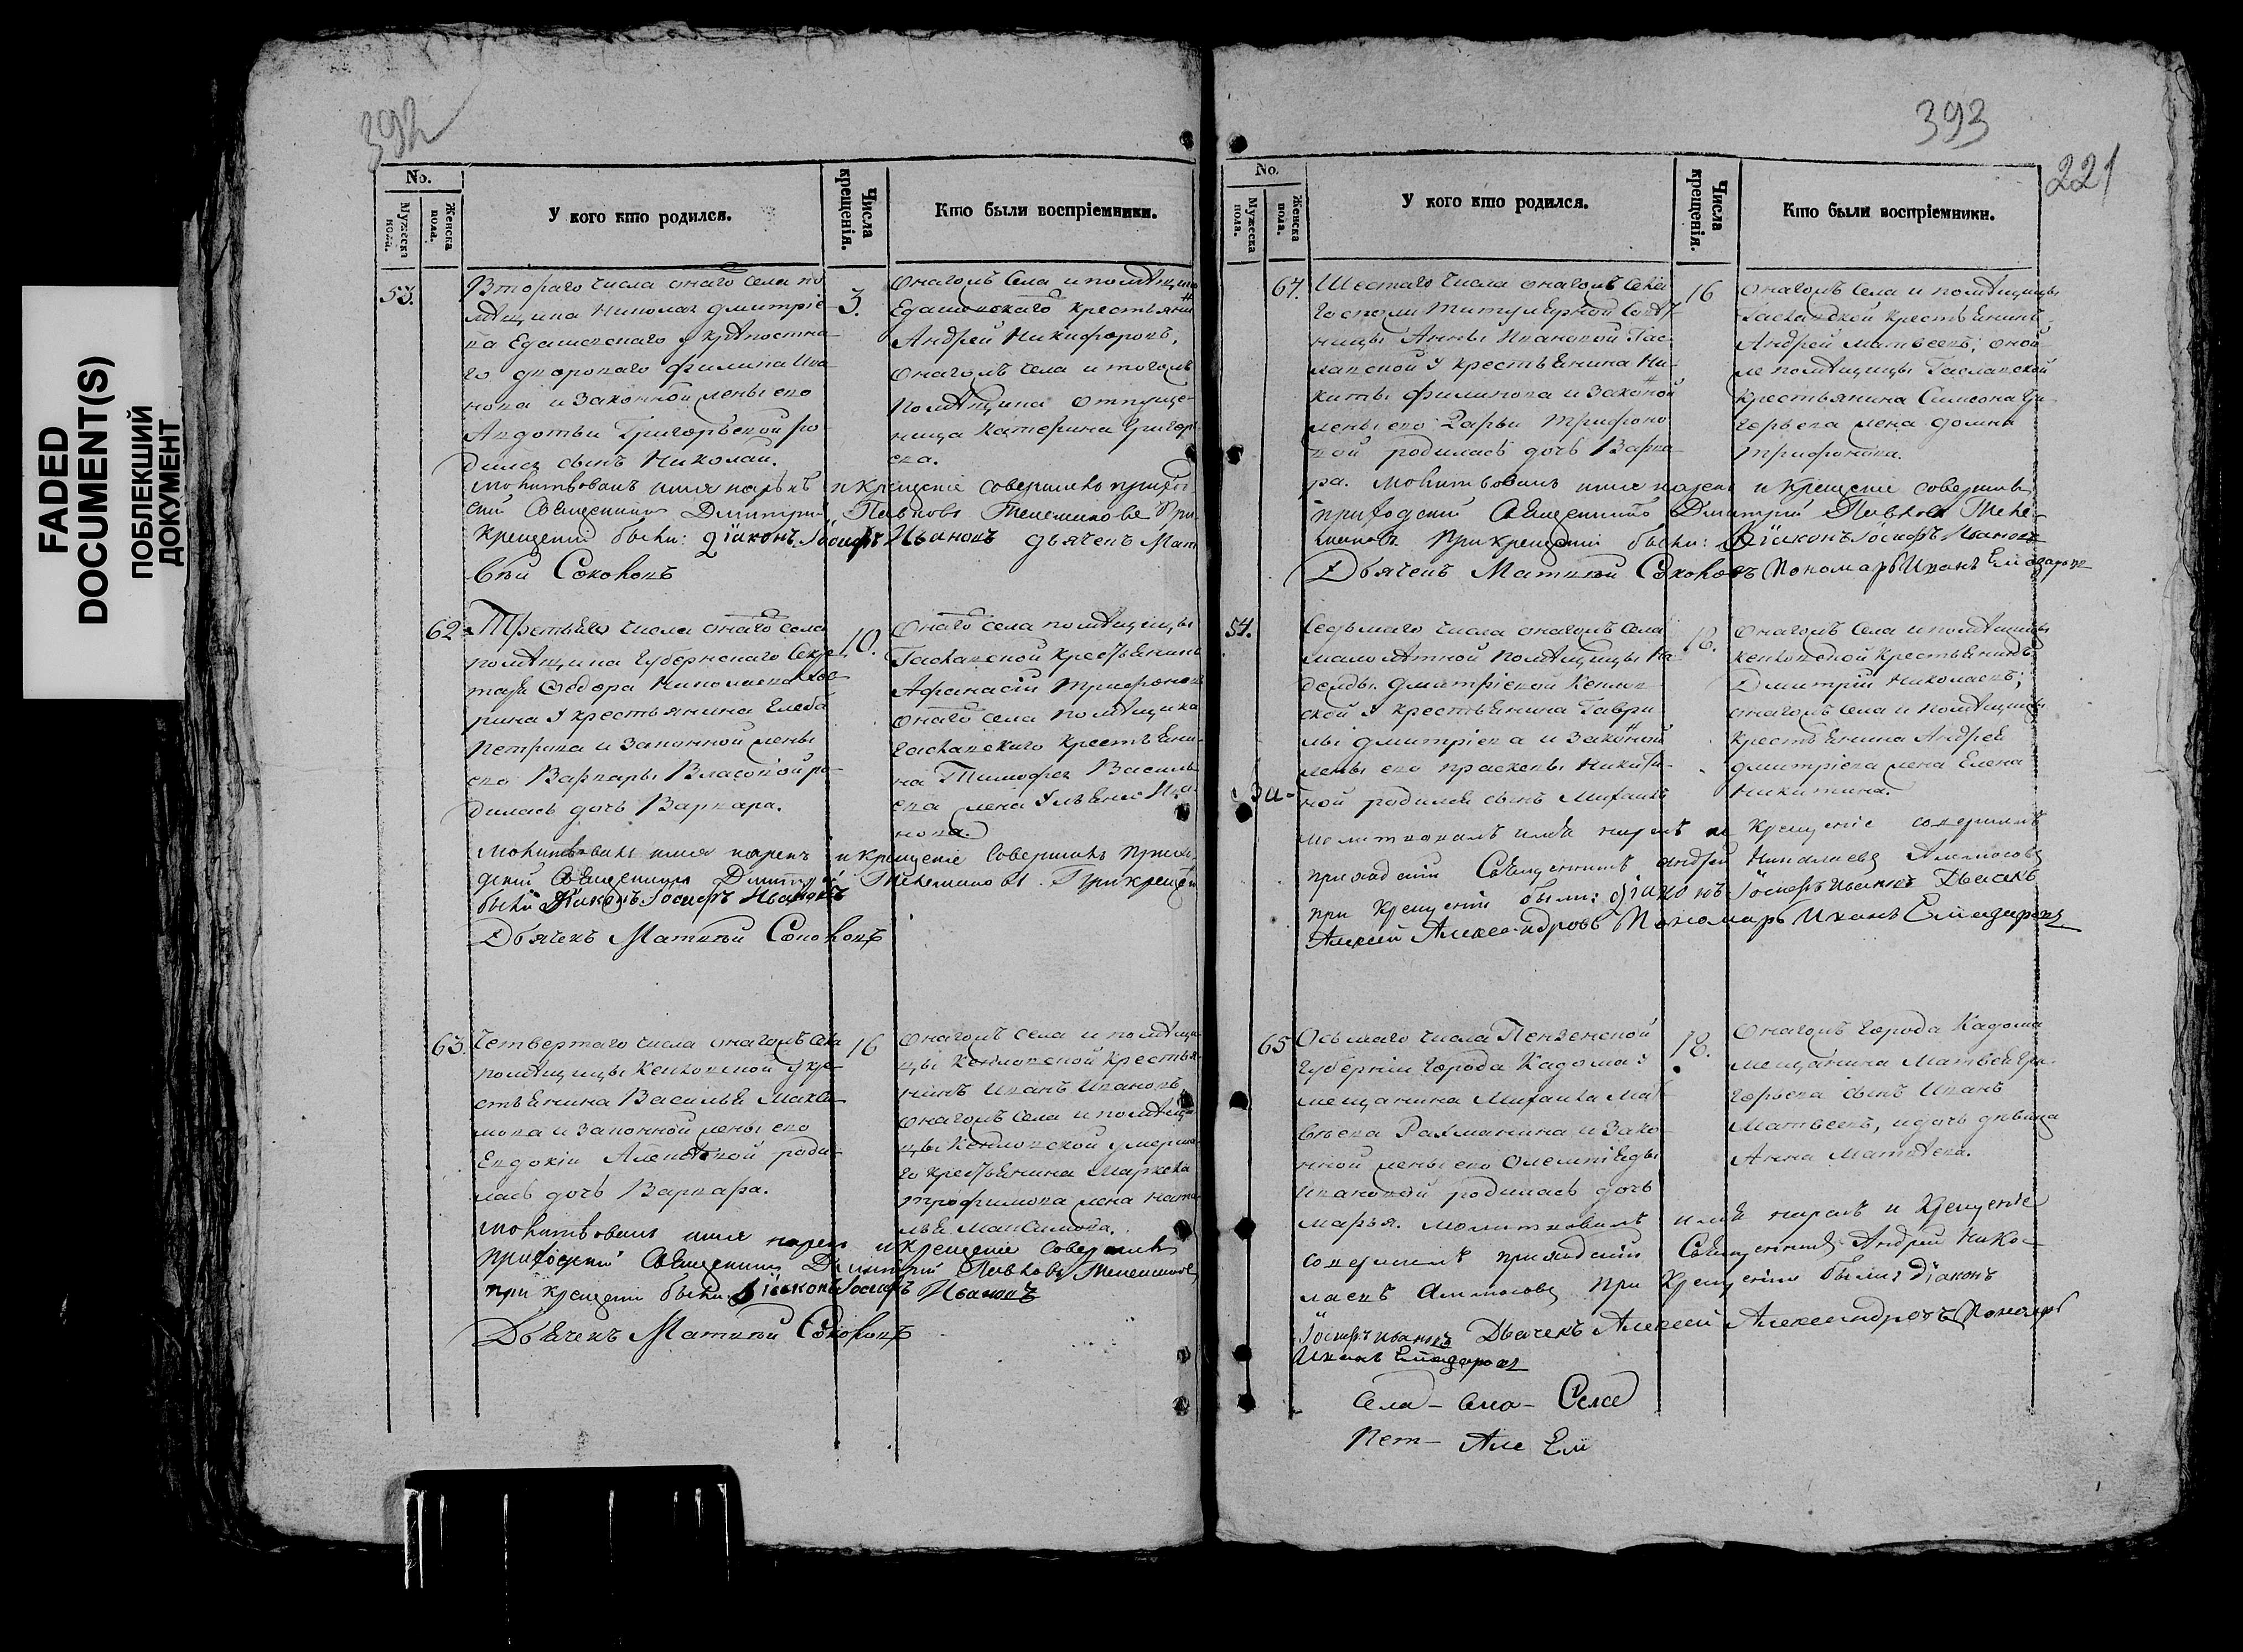 FADED
DOCUMENT(S)
ПОБЛЕКШИЙ
ДОКУМЕНТ
392
No.
Мужеска пола.
Женска пола.
У кого кто родился.
Числа крещенія.
Кто были воспріемники.
53.
Втораго числа онаго села по
мѣщика Николая Дмитріе
ва Едашевскаго у крѣпостна
го двороваго Филипа Ива
нова и законной жены его
Авдотьи Григорьевой ро
дился сынъ Николай.
3.
Онагожъ села и помѣщика
Едашевскаго крестьянинъ
Андрей Никифоровъ,
онагожъ села и тогожъ
помѣщика отпуще
ница Катерина Григорь
ева.
Молитвовалъ имя нарекъ и крещеніе совершилъ приход
ской Священникъ Димитрій Павловъ При
крещеніи были: Діаконъ Іосифъ Ивановъ Дьячекъ Мат
вѣй Соколовъ
62
Третьяго числа онаго села
помѣщика Губернскаго Секре
таря Ѳедора Николаева
рина у крестьянина Глеба
Петрова и законной жены
его Варвары Власовой ро
дилась дочь Варвара.
10.
Онаго села помѣщицы
крестьянинъ
Афанасій Трифоновъ
онаго села помѣщика
крестьяни
на Тимофея Василь
ева жена Ульяна Ива
нова.
Молитвовалъ имя нарекъ и крещеніе совершилъ прихо
дской Священникъ Димитрій При крещеніи
были Діаконъ Іосифъ Ивановъ
Дьячекъ Матвѣй Соколовъ
63.
Четвертаго числа онагожъ села
помѣщицы у кре
стьянина Василья Макси
мова и законной жены его
Евдокіи Алексѣевой роди
лась дочь Варвара.
16
Онагожъ села и помѣщи
цы крестья
нинъ Иванъ Ивановъ
онагожъ села и помѣщи
цы умерша
го крестьянина Маркела
Трофимова жена Ната
лья Максимова.
Молитвовалъ имя нарекъ и крещеніе совершилъ
приходской Священникъ Димитрій Павловъ
при крещеніи были Діаконъ Іосифъ Ивановъ
Дьячекъ Матвѣй Соколовъ
393
221
No.
Мужеска пола.
Женска пола.
У кого кто родился.
Числа крещенія.
Кто были воспріемники.
64.
Шестаго числа онагожъ села
Госпожи Титулярной Совѣт
ницы Анны Ивановой
у крестьянина Ни
киты Филипова и законой
жены его Дарьи Трифоно
вой родилась дочь Варва
ра. Молитвовалъ имя нарекъ и крещеніе совершилъ
16
Онагожъ села и помѣщицы
крестьянинъ
Андрей Матвеевъ; оной
же помѣщицы
крестьянина Симеона Гри
горьева жена Домна
Трифонова.
приходской Священникъ Димитрій Павловъ
При крещеніи были: Діаконъ Іосифъ Ивановъ
Дьячекъ Матвѣй Соколовъ Пономарь Иванъ
54.
Седьмаго числа онагожъ села
малолѣтной помѣщицы На
дежды Дмитріевой
ской у крестьянина Гаври
лы Дмитріева и законной
жены его Прасковьи Никити
ной родился сынъ Михаилъ
18.
Онагожъ села и помѣщицы
крестьянинъ
Дмитрій Николаевъ;
онагожъ села и помѣщицы
крестьянина Андрея
Дмитріева жена Елена
Никитина.
За-
молитвовалъ имя нарекъ и крещеніе совершилъ
приходскій Священникъ Андрей Николаевъ Аммосовъ
при крещеніи были: Діаконъ Іосифъ Ивановъ Дьячекъ
Алексей Александровъ Пономарь Иванъ
65
Осьмаго числа Пензенской
Губерніи города Кадома у
мещанина Михаила Мат
вѣева Рахманина и зако
нной жены его Олемпіяды
Ивановой родилась дочь
Марья. молитвовалъ имя нарекъ и крещеніе
18.
Онагожъ города Кадома
мещанина Матвея Гри
горьева сынъ Иванъ
Матвеевъ, и дочь дѣвица
Анна Матвѣева.
совершилъ приходскій Священникъ Андрей Нико-
лаевъ Аммосовъ при крещеніи были: Діаконъ
Іосифъ Ивановъ Дьячекъ Алексей Александровъ Пономарь
Иванъ
Села-
Пет- Але Ели